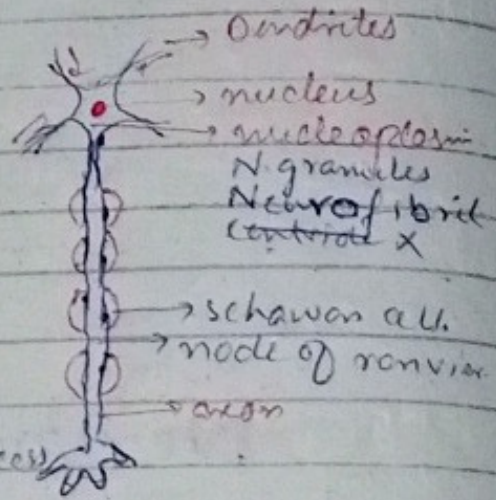 Dendrites
nucleus
nucleoplasm
N. granules
Neurofibril
Centriole X
schawan cell.
node of ranvier
axon